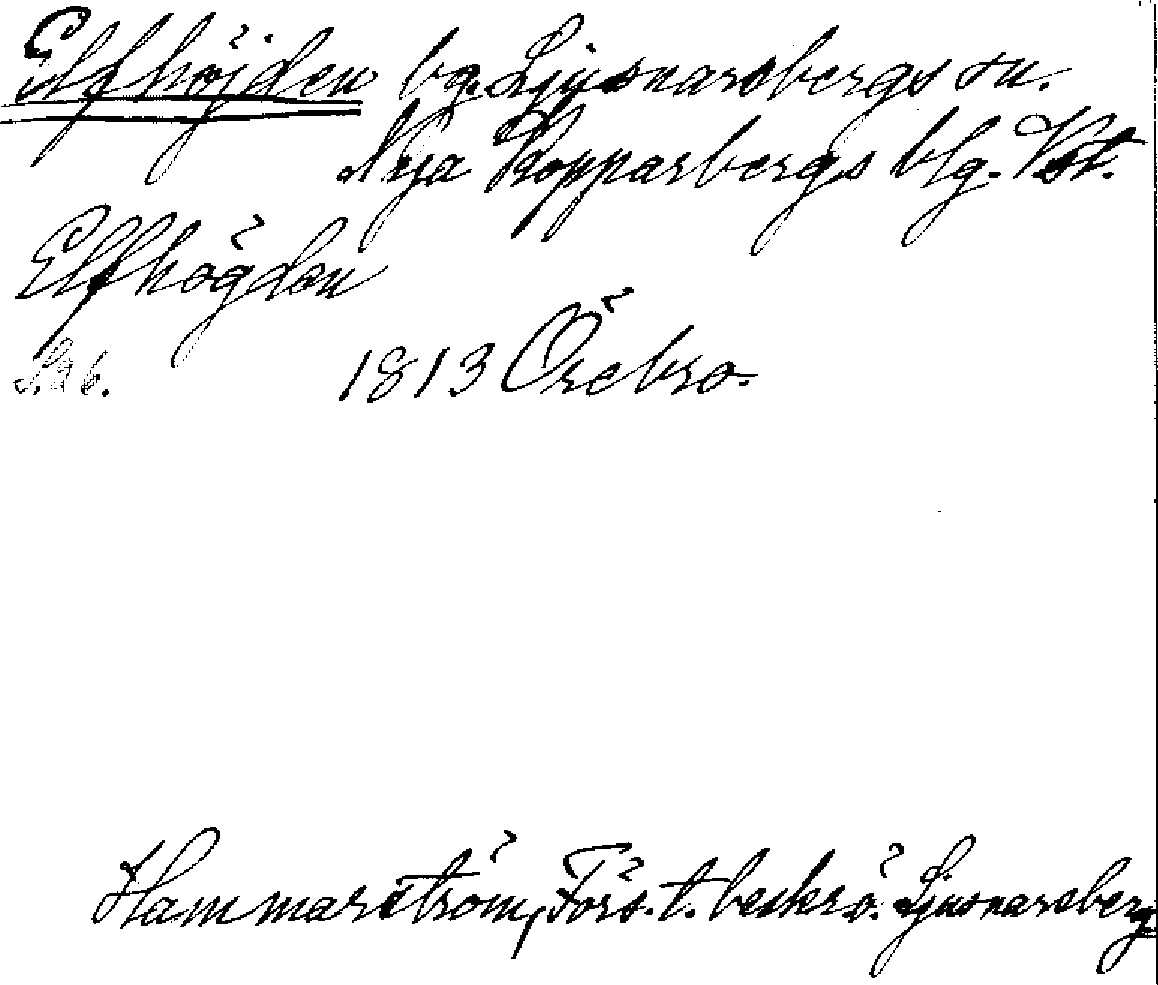 Elfhöjden bg. Ljusnarsbergs sn.
Nya Kopparbergs blg. Vst.
Elfhögden
S. 26. 1813 Örebro.
Hammarström, Förs. t. beskr. ö. Ljusnarsberg